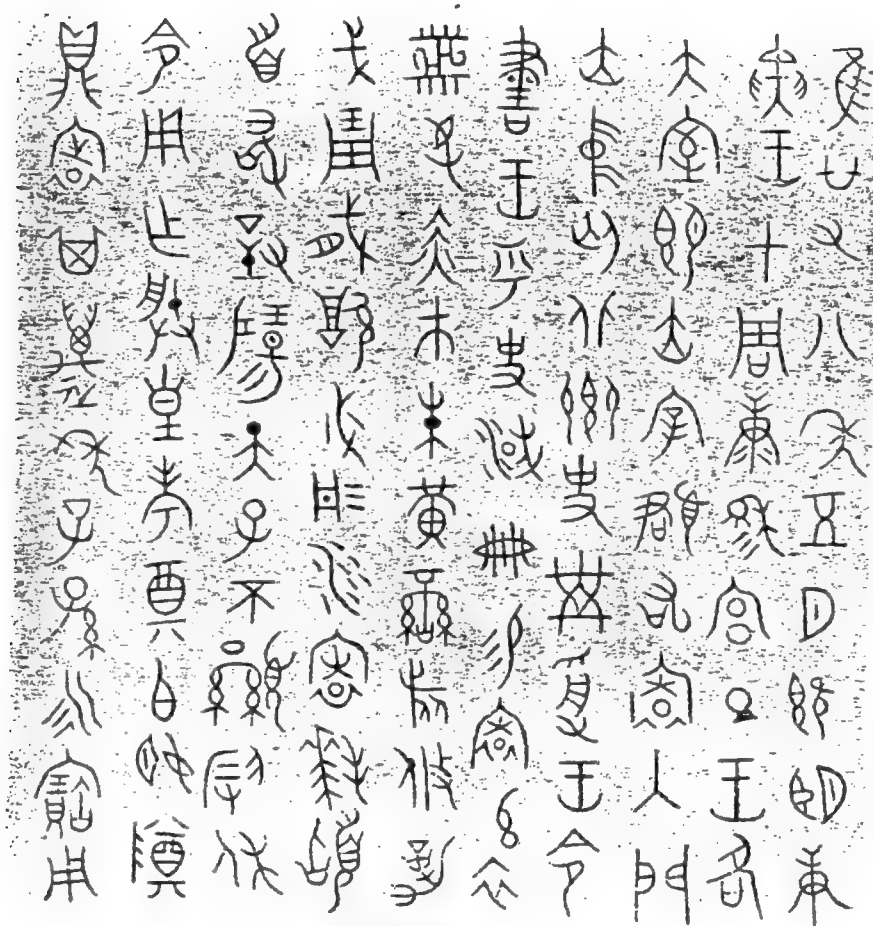 隹廿又八年五月既望庚
寅王才周康穆宮旦王各
大室即立宰頵右寰入門
立中廷北鄉史黹受王令
書王乎史淢冊易寰玄衣
黹屯赤巿朱黃䜌旂攸勒
戈琱㦸厚柲彤沙寰拜稽
首敢對揚天子不顯叚休
令用乍朕皇考奠白姬尊
鼎寰其萬年子孫永寶用